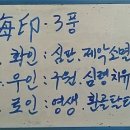 海印: 3풍
화인: 심판. 제악소멸
우인: 구원. 심령치유
로인: 영생. 환골탈태